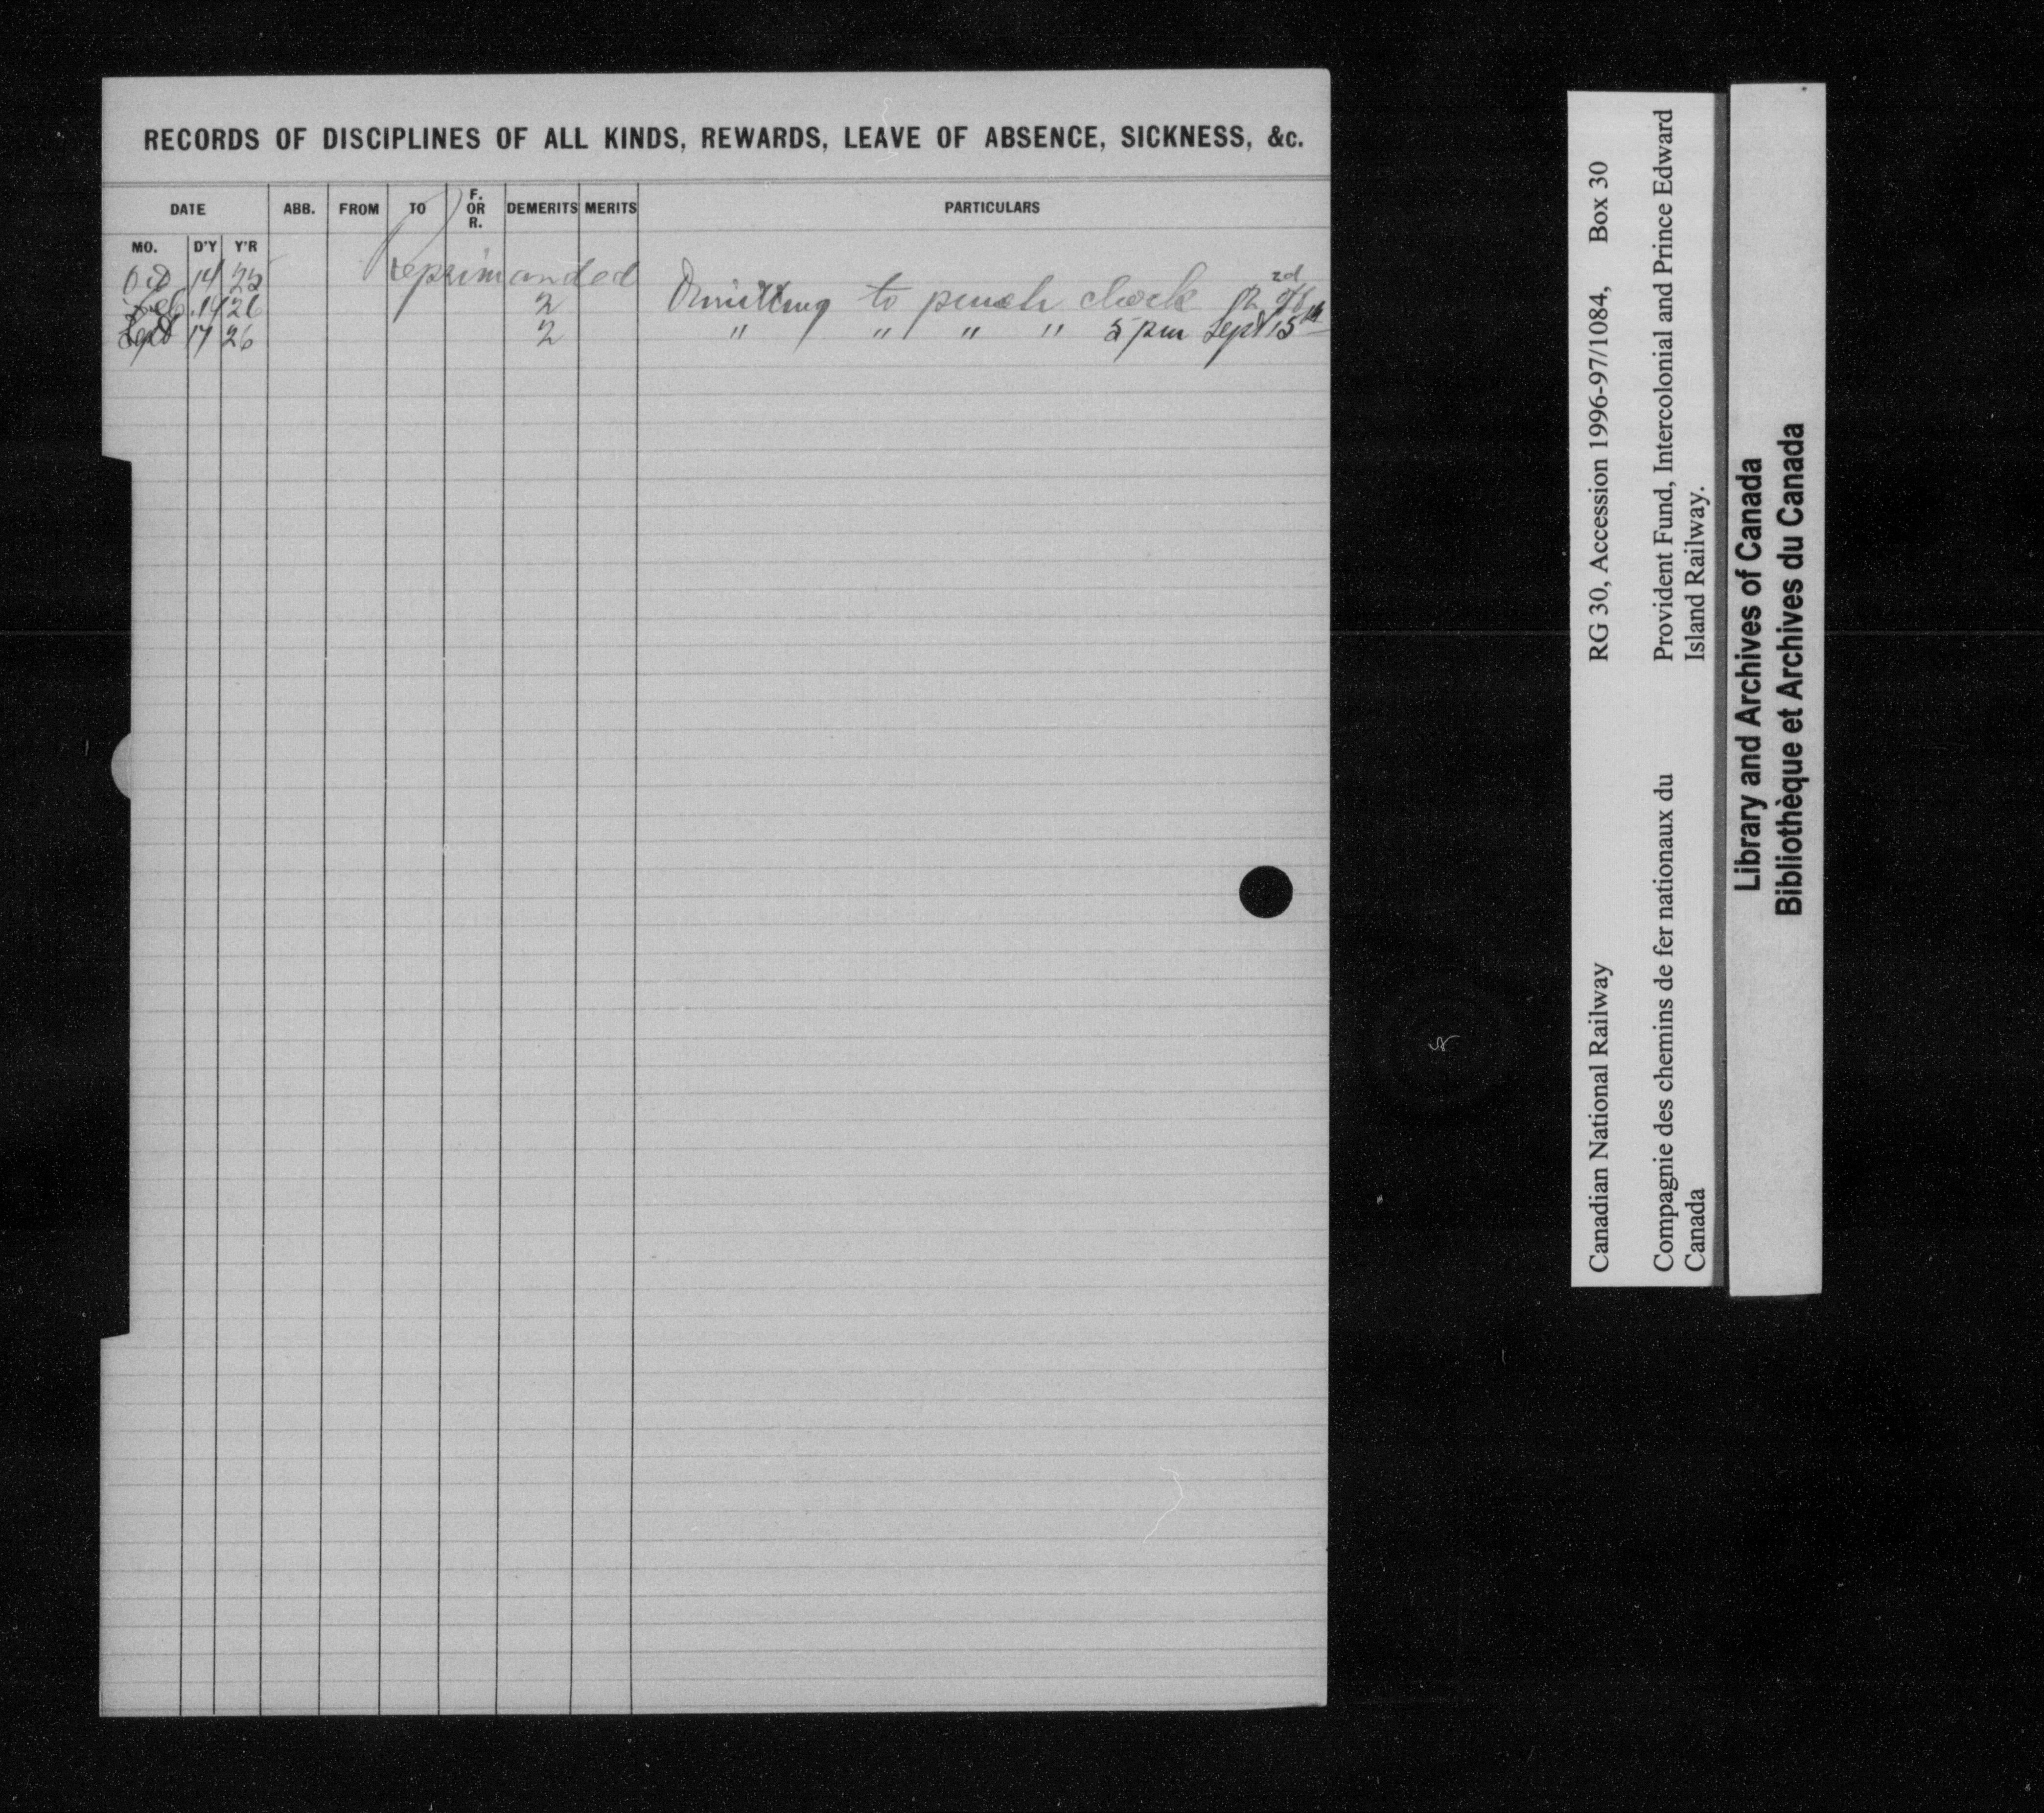 RECORDS OF DISCIPLINES OF ALL KINDS, REWARDS, LEAVE OF ABSENCE, SICKNESS, &c.
DATE ABB. FROM TO F. OR R. DEMERITS MERITS PARTICULARS
MO. D'Y Y'R
Oct 14 25 Reprimanded
Feb. 14 26 2 Omitting to punch clock 2nd
Sept 17 26 2 " " " " 5 pm Sept 15th
RG 30, Accession 1996-97/1084, Box 30
Provident Fund, Intercolonial and Prince Edward
Island Railway.
Canadian National Railway
Compagnie des chemins de fer nationaux du
Canada
Library and Archives of Canada
Bibliothèque et Archives du Canada